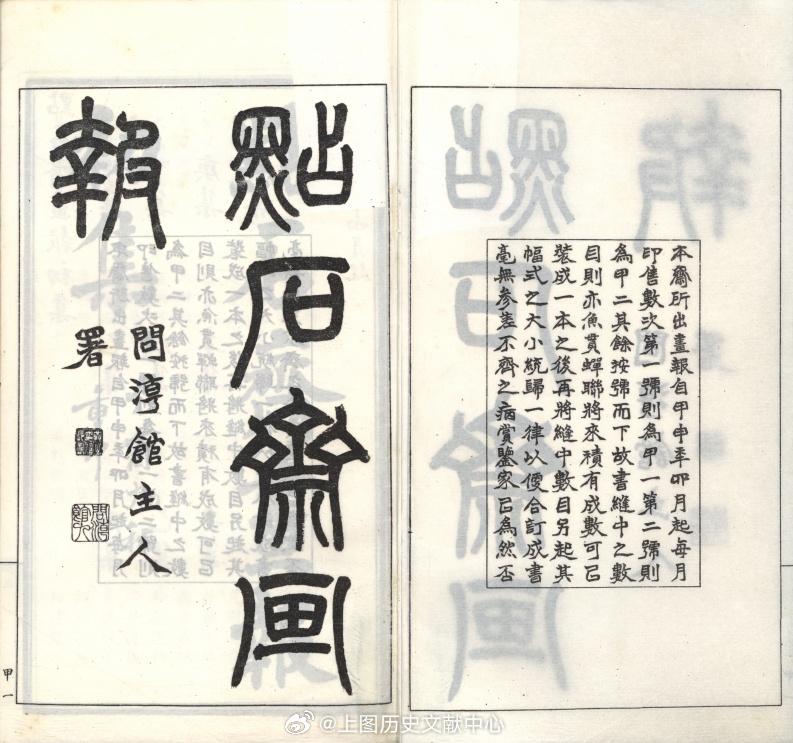 本齋所出畫報自甲申年四月起每月
印售數次第一號則為甲一第二號則
為甲二其餘按號而下故書縫中之數
目則亦魚貫蟬聯將來積有成數可㠯
裝成一本之後再將縫中數目另起其
幅式之大小統歸一律以便合訂成書
毫無參差不齊之病賞鑒家㠯為然否
點石齋画
報
問淳館主人
署
甲一
@上图历史文献中心